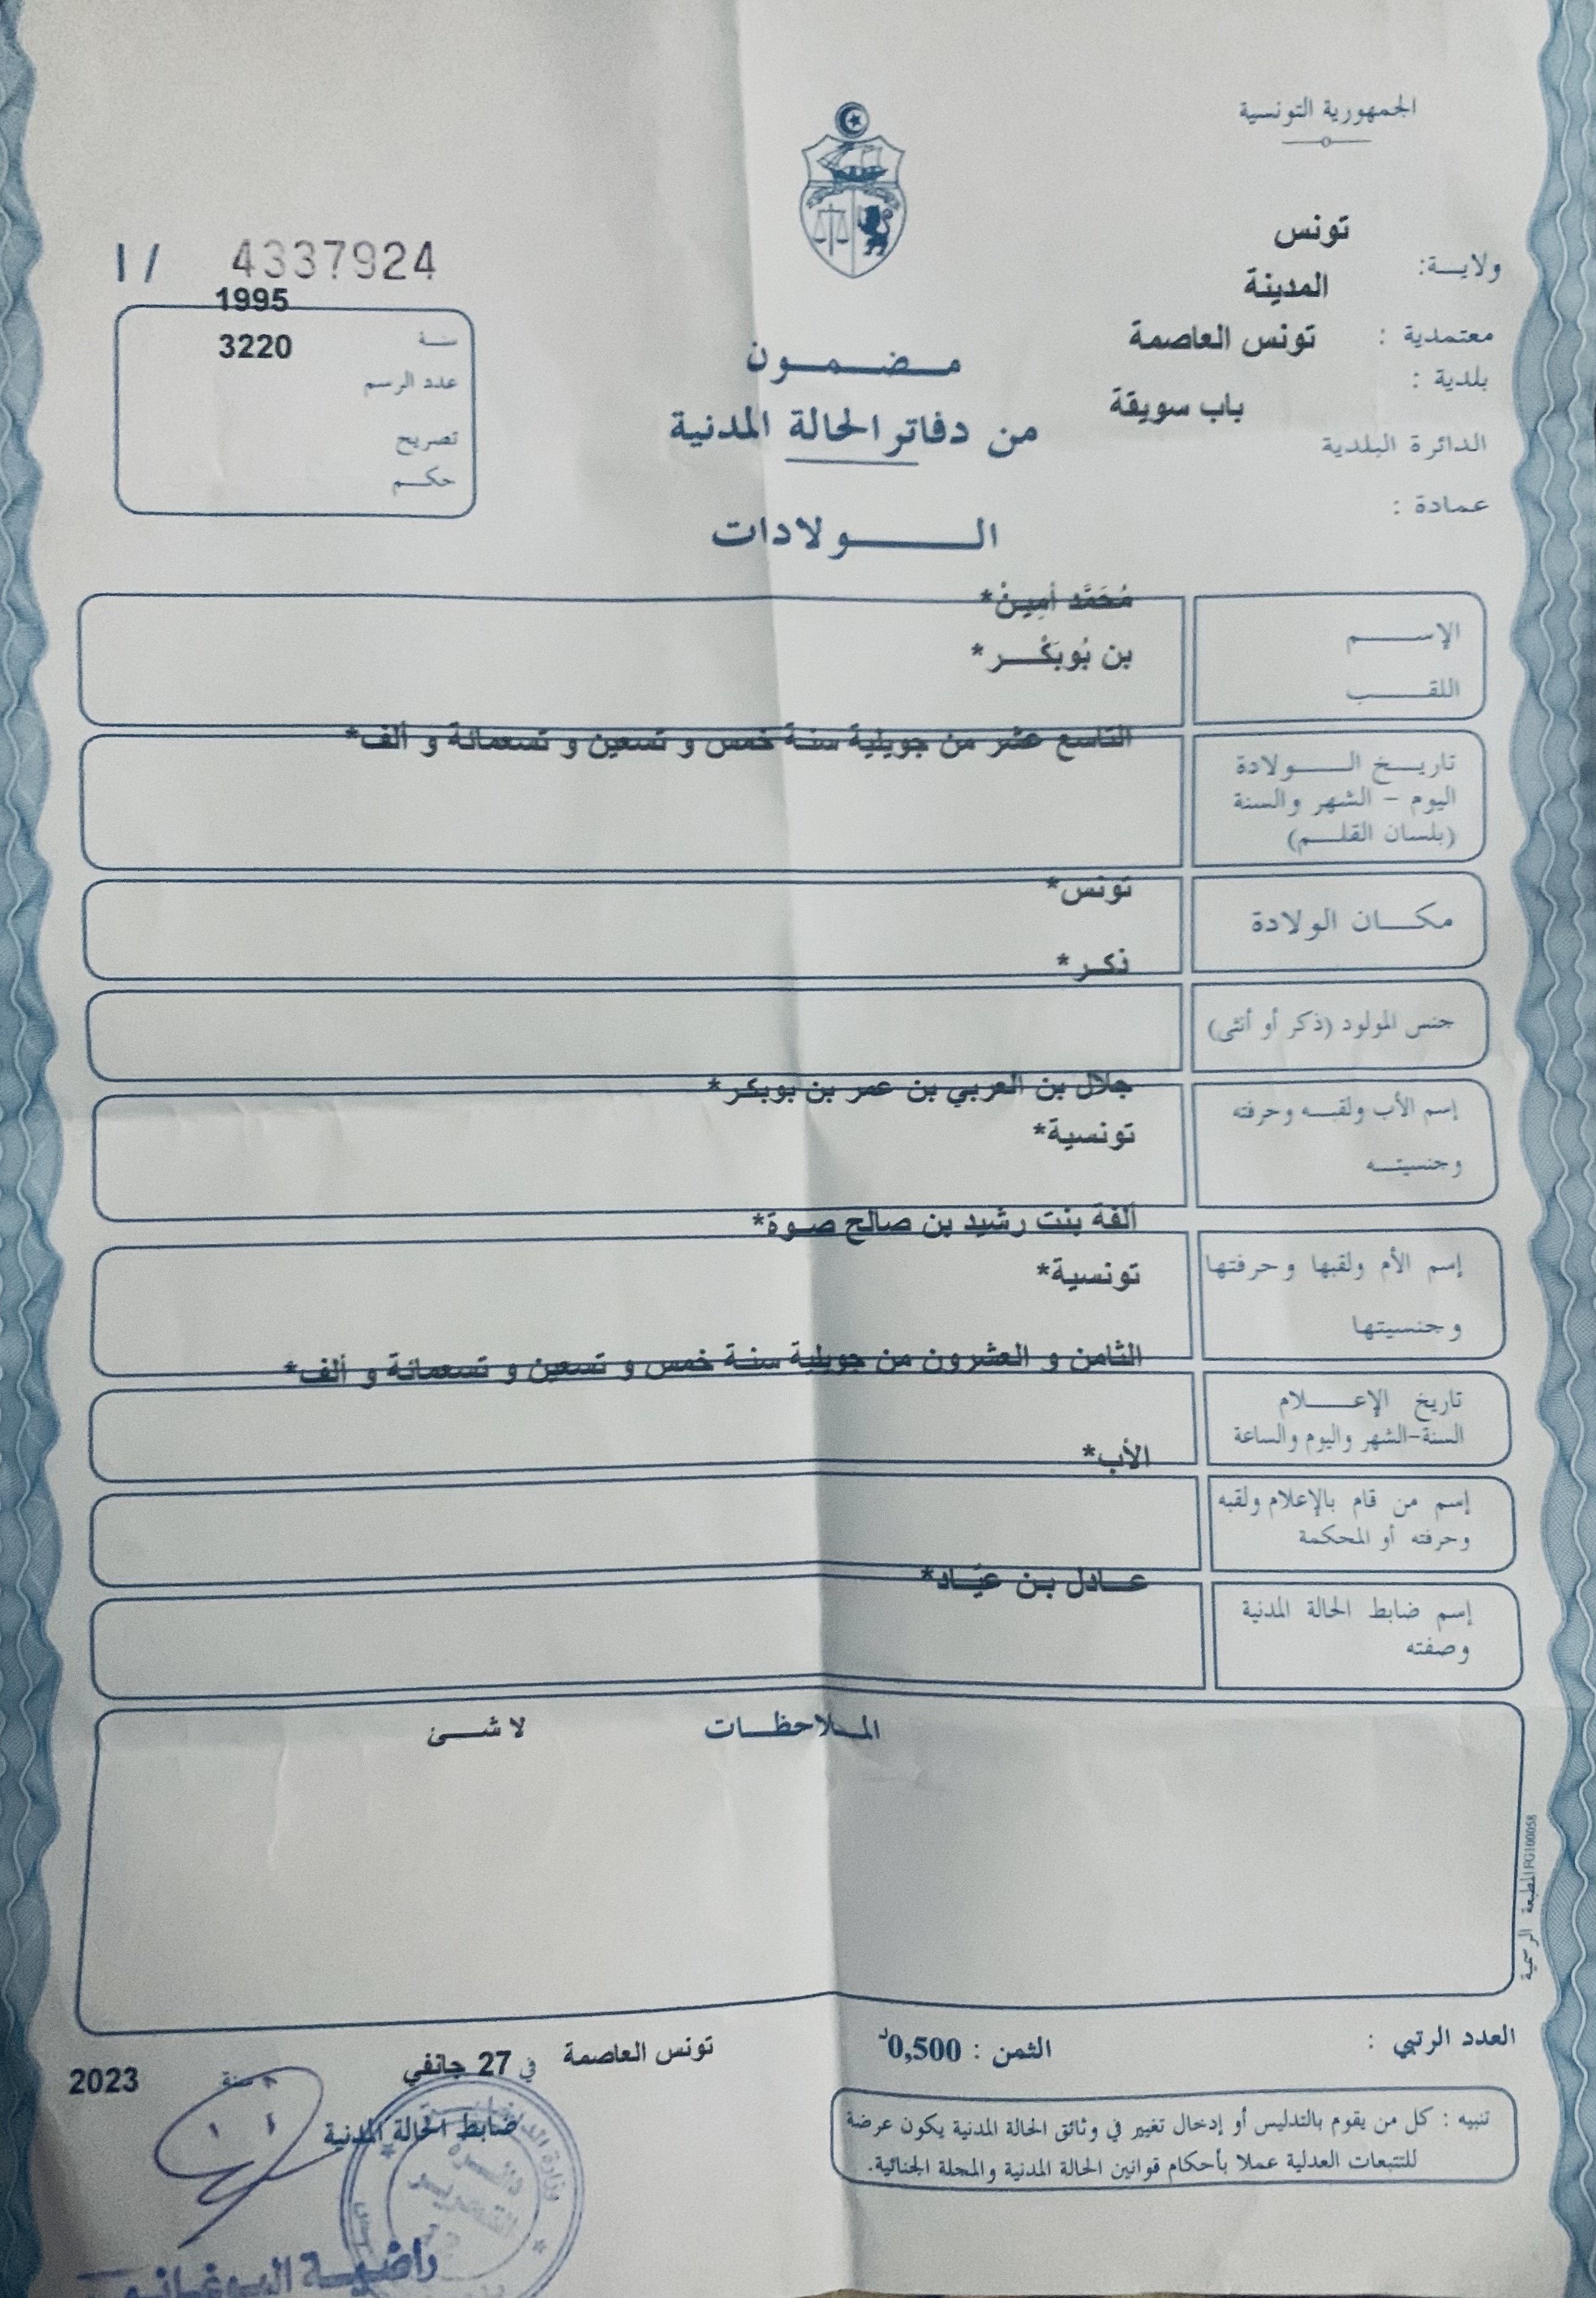 الجمهورية التونسية
تونس
ولايــة:
المدينة
معتمدية :
تونس العاصمة
بلدية :
باب سويقة
الدائرة البلدية
عمادة :
I / 4337924
1995
سنـة
3220
عدد الرسم
تصريح
حكـم
مـضـمـون
من دفاتر الحالة المدنية
الـولادات
مُحَمَّد أمِينْ*
الإسـم
بن بُوبَكْـر*
اللقـب
التاسع عشر من جويلية سنة خمس و تسعين و تسعمائة و ألف*
تاريـخ الـولادة
اليوم – الشهر والسنة
(بلسان القلـم)
تونس*
مكـان الولادة
ذكـر*
جنس المولود (ذكر أو أنثى)
جلال بن العربي بن عمر بن بوبكر*
إسم الأب ولقبـه وحرفته
تونسية*
وجنسيتـه
ألفة بنت رشيد بن صالح صـوة*
إسم الأم ولقبها وحرفتها
تونسية*
وجنسيتها
الثامن و العشرون من جويلية سنة خمس و تسعين و تسعمائة و ألف*
تاريخ الإعـلام
السنة-الشهر واليوم والساعة
الأب*
إسم من قام بالإعلام ولقبه
وحرفته أو المحكمة
عـادل بـن عيّـاد*
إسم ضابط الحالة المدنية
وصفته
المـلاحظـات لا شـئ
المطبعة الرسمية FG100058
العدد الرتبي :
الثمن : 0,500د
تونس العاصمة في 27 جانفي سنة 2023
ضابط الحالة المدنية
تنبيه : كل من يقوم بالتدليس أو إدخال تغيير في وثائق الحالة المدنية يكون عرضة
للتتبعات العدلية عملا بأحكام قوانين الحالة المدنية والمجلة الجنائية.
دائـرة
التحريـر
راضيـة